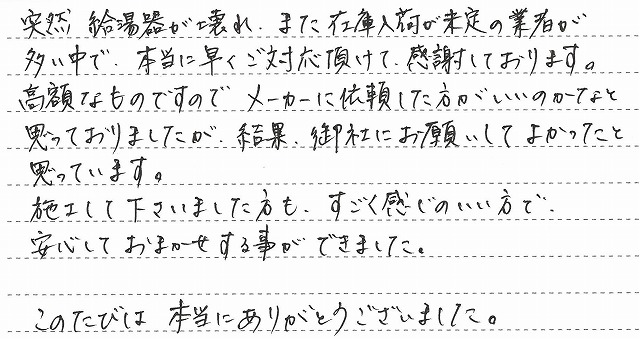 突然 給湯器が壊れ、また在庫入荷が未定の業者が
多い中で、本当に早くご対応頂けて、感謝しております。
高額なものですので、メーカーに依頼した方がいいのかなと
思っておりましたが、結果、御社にお願いしてよかったと
思っています。
施工して下さいました方も、すごく感じのいい方で、
安心しておまかせする事ができました。
このたびは 本当にありがとうございました。